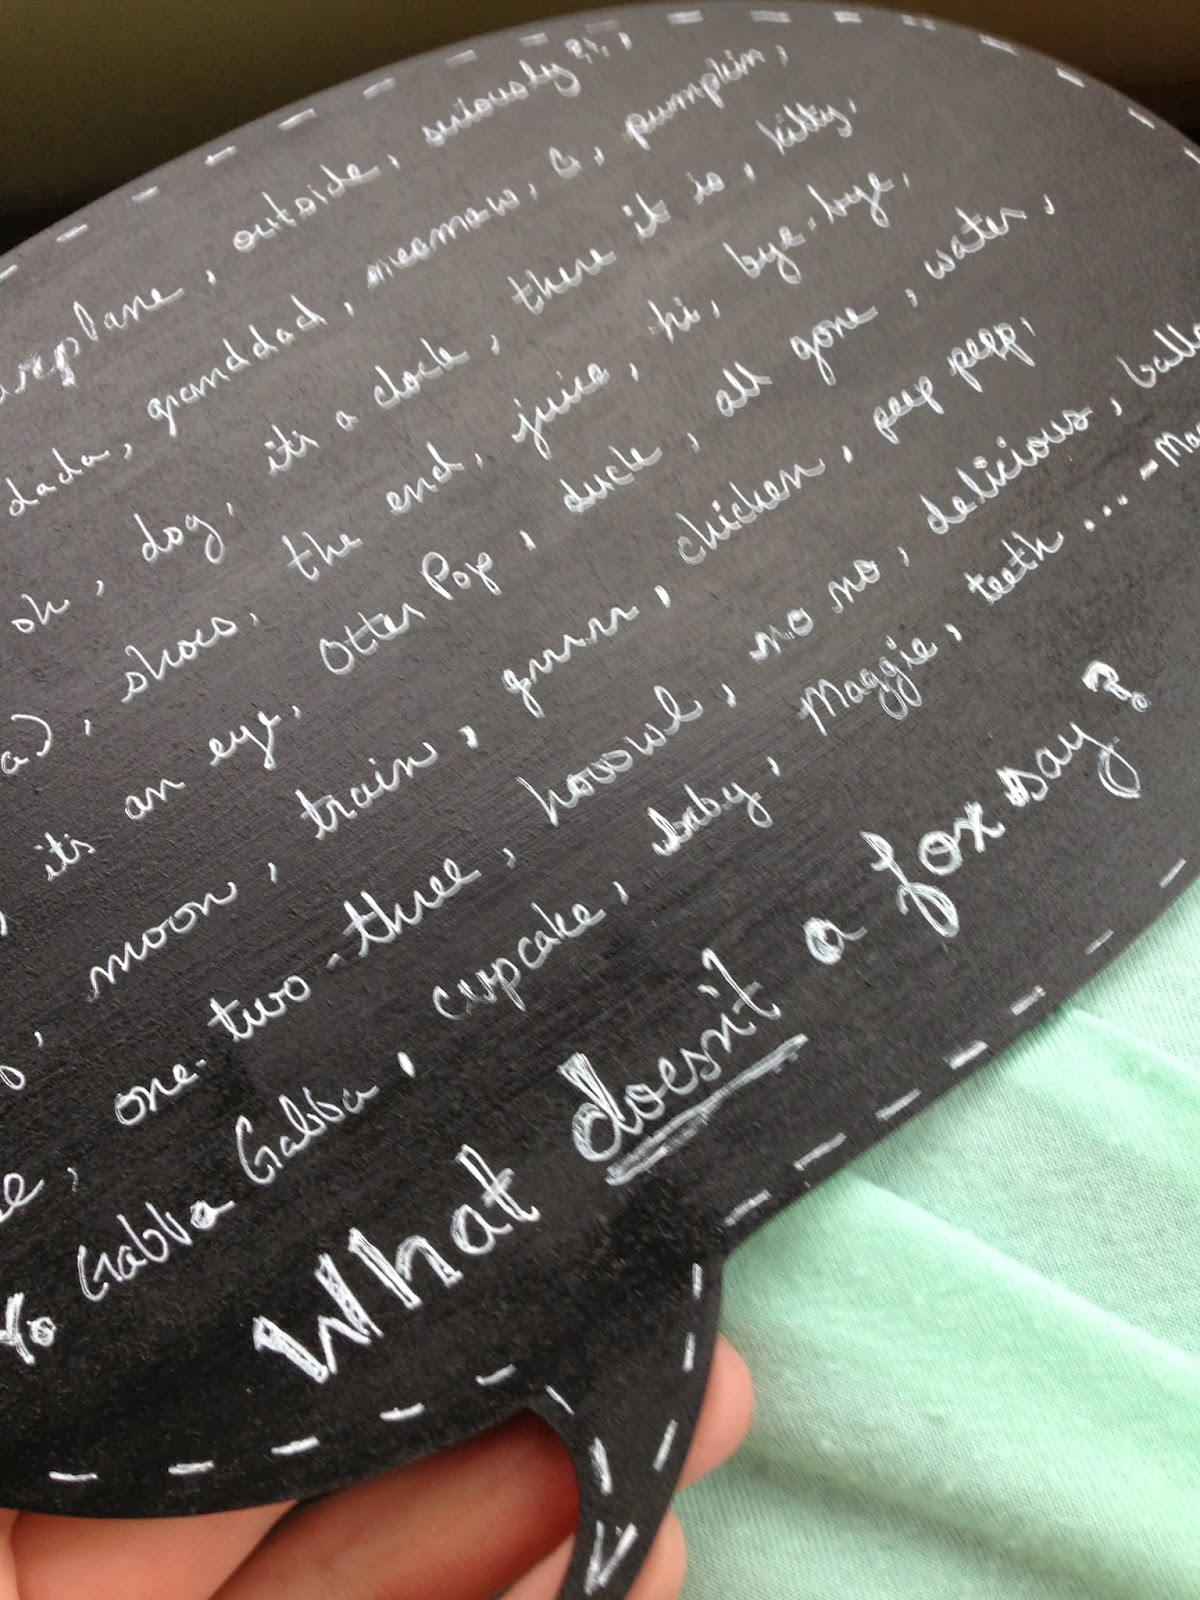 airplane, outside, seriously?!,
dada, granddad, meamaw, G, pumpkin,
oh, dog, it's a clock, there it is, kitty,
a), shoes, the end, juice, hi, bye-bye,
it's an eye, Otter Pop, duck, all gone, water,
, moon, train, grrrr, chicken, peep peep,
, one-two-three, hooowl, no no, delicious,
Yo Gabba Gabba, cupcake, baby, Maggie, teeth ... -Ma
What doesn't a fox say?